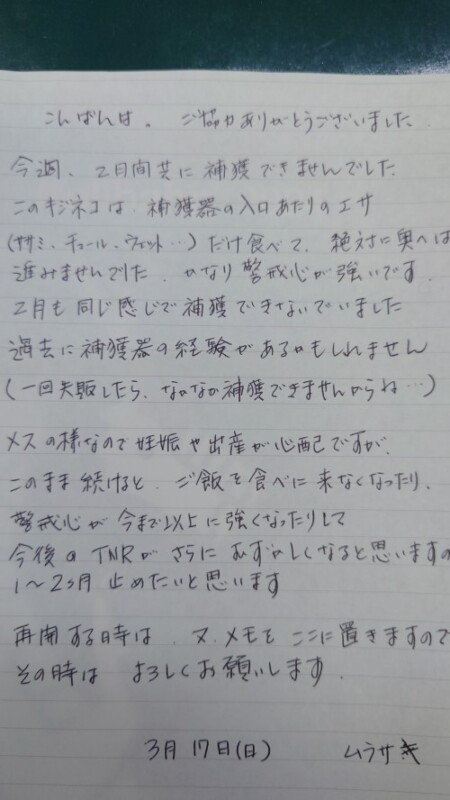 こんばんは。ご協力ありがとうございました。
今週、2日間共に補獲できませんでした
このキジネコは補獲器の入口あたりのエサ
(ササミ、チュール、ウェット…)だけ食べて、絶対に奥へは
進みませんでした。かなり警戒心が強いです。
2月も同じ感じで補獲できないでいました
過去に補獲器の経験があるかもしれません
(一回失敗したら、なかなか補獲できませんからね…)
メスの様なので妊娠や出産が心配ですが、
このまま続けると、ご飯を食べに来なくなったり、
警戒心が今まで以上に強くなったりして
今後のTNRがさらにむずかしくなると思いますの
1〜2ヶ月止めたいと思います
再開する時は、又、メモをここに置きますので
その時はよろしくお願いします。
3月17日(日) ムラサキ